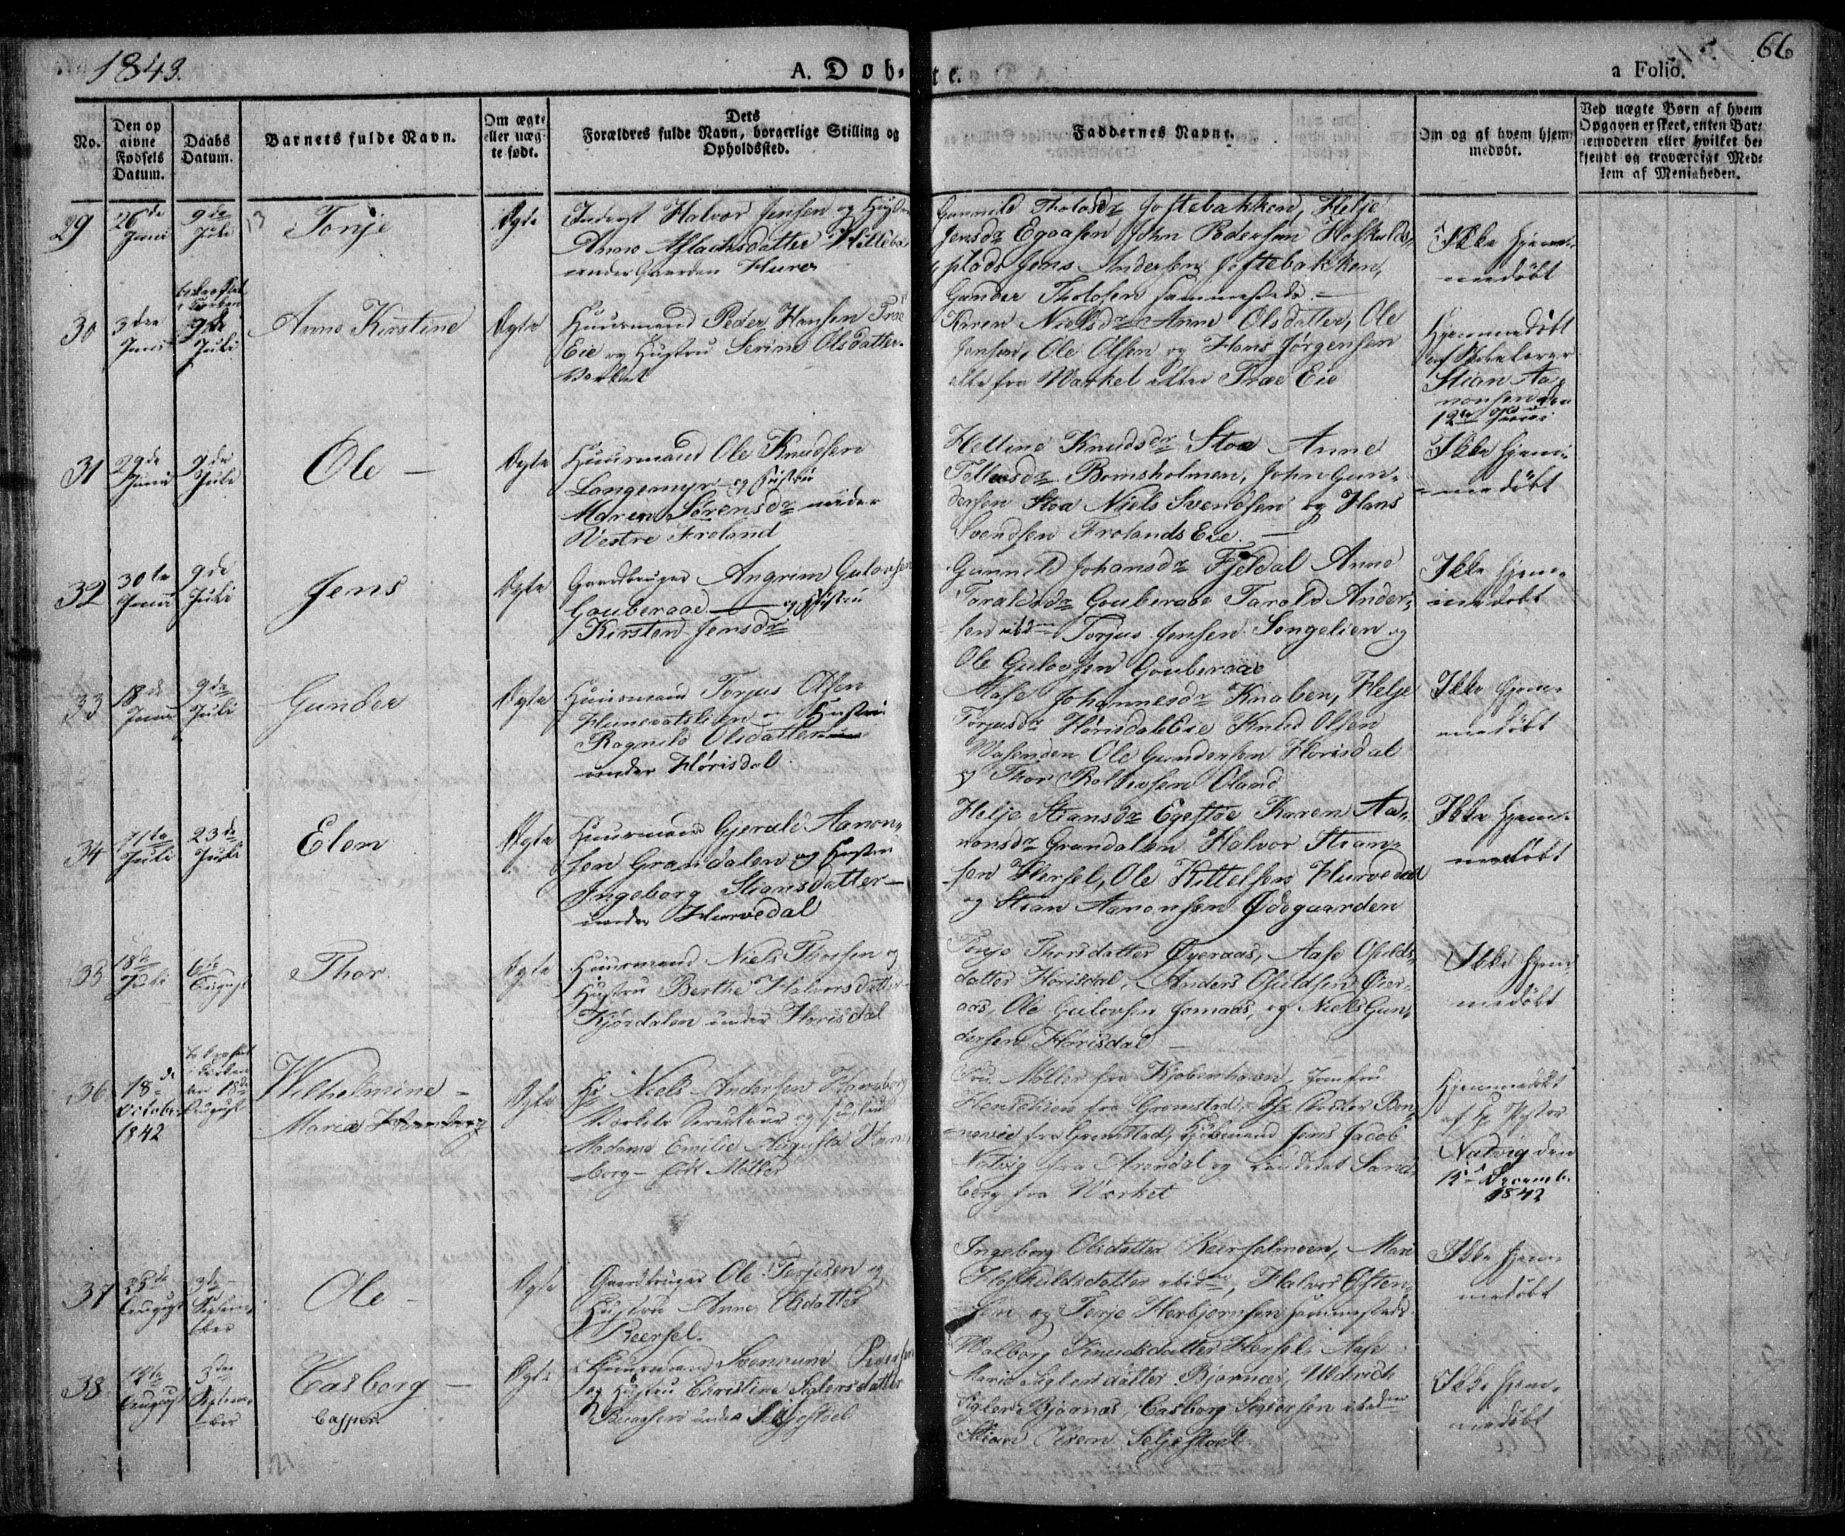 1843.
A. Døb-
te.
a Folio.
66
No.
Den op
givne
Fødsels
Datum.
Daabs
Datum.
Barnets fulde Navn.
Om ægte
eller uæg-
te født.
Dets
Forældres fulde Navn, borgerlige Stilling og
Opholdssted.
Faddernes Navne.
Om og af hvem hjem
medøbt.
Ved uægte Børn af hvem
Opgaven er skeet, enten Bar-
nemoderen eller hvilket be-
kjendt og troværdigt Med-
lem af Menigheden.
29
26de
Juni
9de
Juli
Tonje
Ægte
Inderst Halvor Jensen og Hustru
Anne Aslachsdatter
under Gaarden Hurv
Gunnild Tholosdr Joftebakken, Helje
Jensdr Egaasen John Pedersen Hofkulds-
plads Jens Andersen Joftebakken,
Gunder Tholosen sammesteds. —
Ikke hjem-
medøbt
30
3die
Juni
9de
Juli
Anne Kirstine
Ægte
Huusmand Peder Hansen Træ
Eie og Hustru Serine Olsdatter
Værket
Karen Nielsdr Anne Olsdatter, Ole
Jensen, Ole Olsen og Hans Jørgensen
alle fra Værket eller Træ Eie
Hjemmedøbt
af Skolelærer
Stian Aa-
nonsen den
12te Juni
31
29de
Juni
9de
Juli
Ole —
Ægte
Huusmand Ole Knudsen
Langemyr og Hustru
Maren Sørensdr under
Vestre Froland
Helline Knudsdr Stoa Anne
Tellefsdr Bomsholmen, John Gun-
dersen Stoa Niels Svendsen og Hans
Svendsen Frolands Eie. —
Ikke hjem-
medøbt
32
30te
Juni
9de
Juli
Jens
Ægte
Gaardbruger Angrim Gulovsen
Gouberaae — og Hustru
Kirsten Jensdr
Gunnild Johansdr Fjeldal Anne
Taraldsdr Gouberaae Tarald Ander-
sen ibdm Torjus Jensen Songelien og
Ole Gulovsen Gouberaae
Ikke hjem-
medøbt
33
18de
Juni
9de
Juli
Gunder
Ægte
Huusmand Torjus Olsen
og Hustru
Ragnild Olsdatter
under Hørisdal
Aase Johannesdr Knaben, Helje
Torjusdr HørisdalsEie Knud Olsen
Vasenden Ole Gundersen Hørisdal
og Thor Rolleivsen Oland
Ikke hjem-
medøbt
34
11te
Juli
23de
Juli
Elen
Ægte
Huusmand Gjerald Aanon-
sen Grandalen og Hustru
Ingeborg Stiansdatter —
under Hurvedal
Helje Stiansdr Egestøe Karen Aa-
nonsdr Grandalen Halvor Stian-
sen Hersel, Ole Kittelsen Hurvedal
og Stian Aanonsen Ødegaarden
Ikke hjem-
medøbt
35
18de
Juli
6te
August
Thor.
Ægte
Huusmand Niels Thorsen og
Hustru Berthe Halvorsdatter
Kjørdalen under Hørisdal
Tonje Thorsdatter Øyeraas, Aase Osulds-
datter Hørisdal, Anders Osuldsen Øier-
aas, Ole Gulovsen Jomaas, og Niels Gun-
dersen Hørisdal —
Ikke hjem-
medøbt
36
18de
October
1842
August
Wilhelmine —
Marie
Ægte
Hr Niels Andersen
Værkets Directeur og Hustru
Madame Emilie Augusta
-berg — født Møller
Fru Møller fra Kjøbenhavn, Jomfru
Henrichsen fra Grimstad,
fra Grimstad, Kjøbmand Jens Jacob
Natvig fra Arendal og Sand-
berg fra Værket
Hjemmedøbt
af Hr Pastor
Natvig den
15de Decemb.
1842
37
August
3de
Septem-
ber
Ole —
Ægte
Gaardbruger Ole Terjesen og
Hustru Anne Olsdatter
Reiersel.
Ingeborg Olsdatter Reierselmoen, Mari
Hofkuldsdatter ibidm, Halvor Osten-
sen og Terje Herbjørnsen sammesteds.
Ikke hjem-
medøbt
38
August
3die
Septem-
ber
Casborg —
Casper.
Ægte
Huusmand Svennum Peders
og Hustru Christine Siglersdatter
Braasen under Seljestøel
Walborg Knudsdatter Hersel, Aase
Marie Siglersdatter Bjørnæs, Uldrich
Sigler Bjørnæs, Casborg Siglersen ibidm
Seljestøel
Ikke hjem-
medøbt